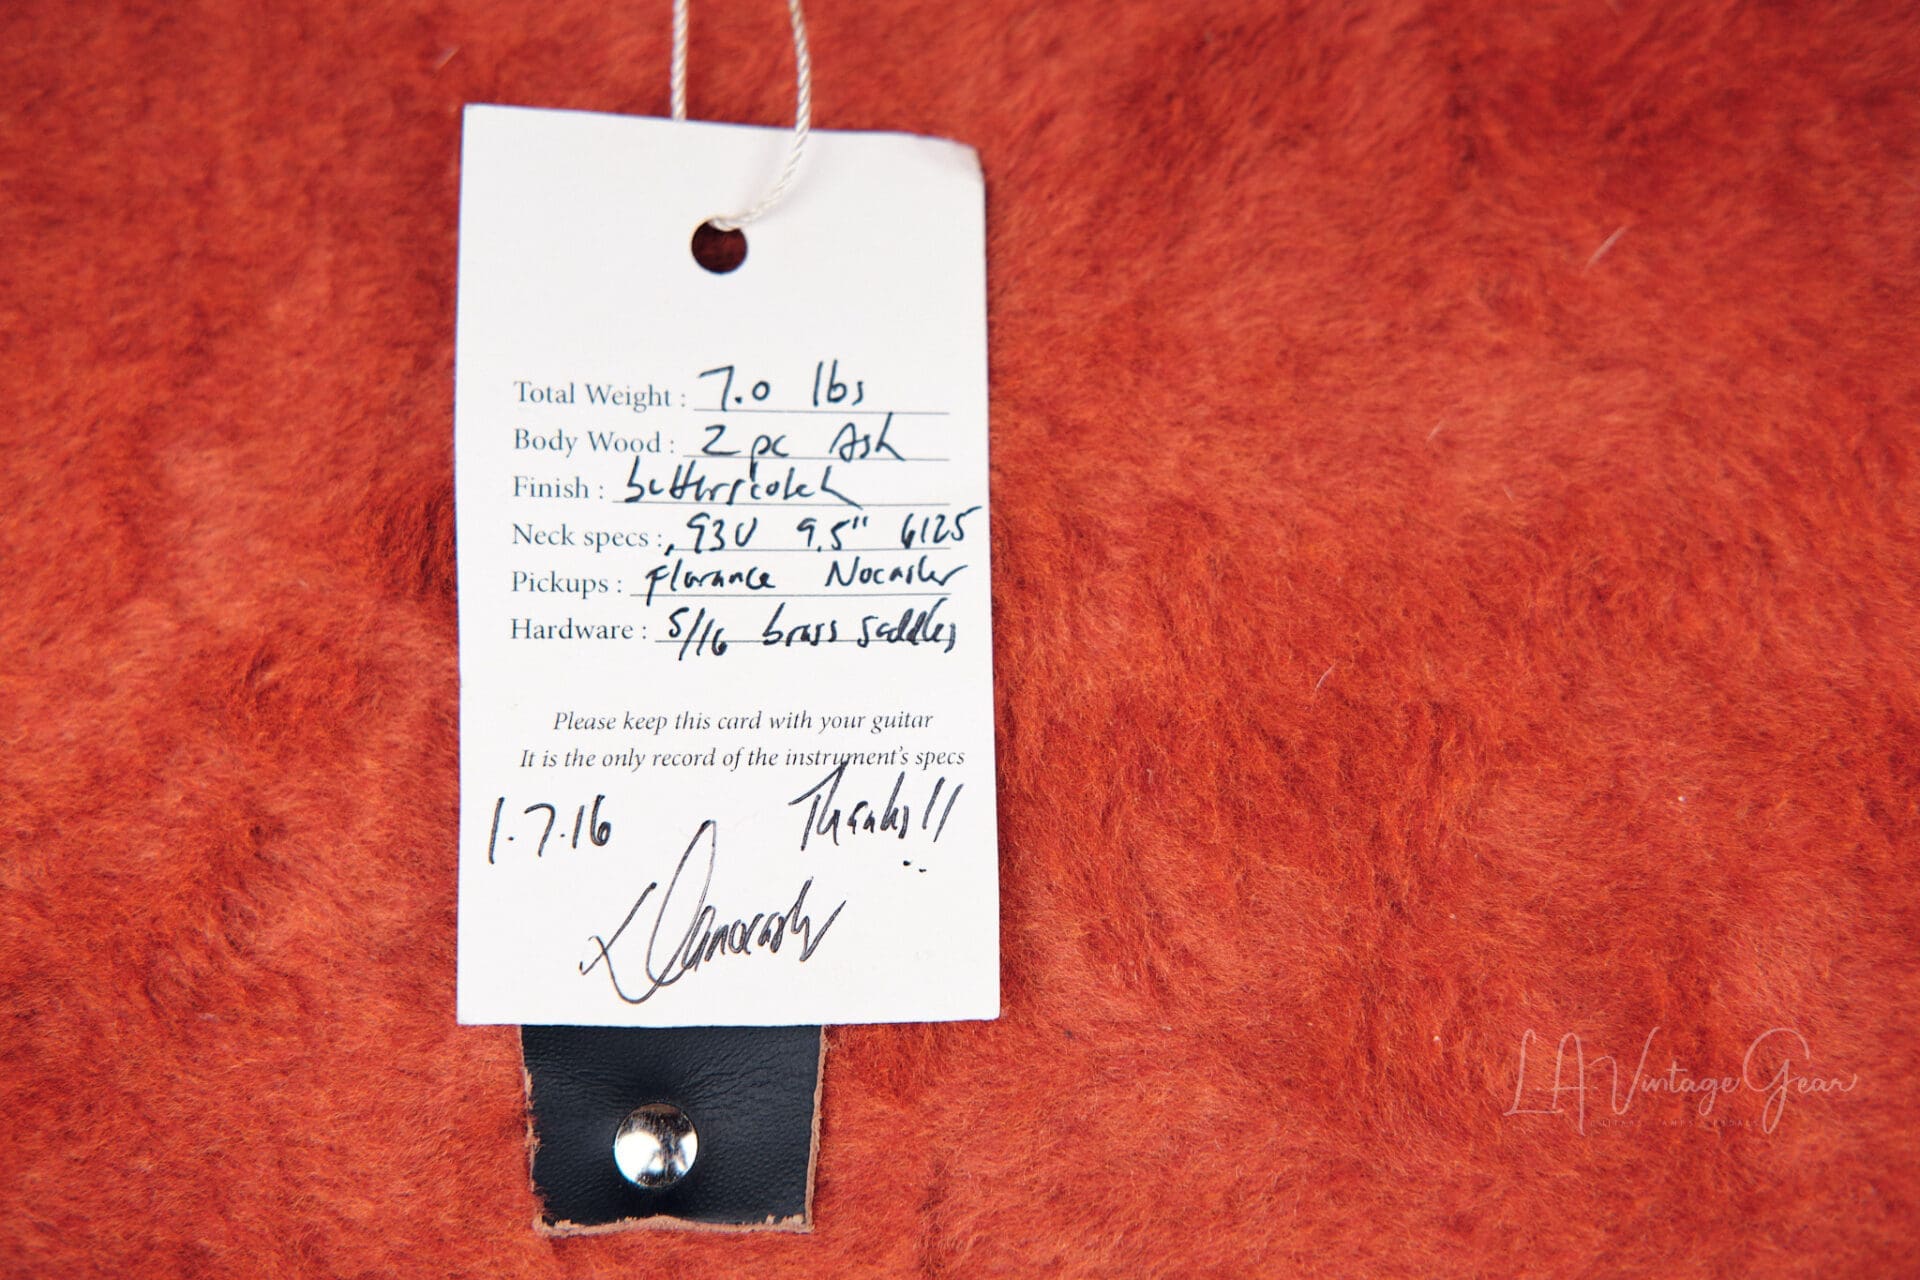 Total Weight : 7.0 lbs
Body Wood : 2 pc Ash
Finish : butterscotch
Neck specs : .93 U 9.5" 6125
Pickups : Florance Nocaster
Hardware : 5/16 brass saddles
Please keep this card with your guitar
It is the only record of the instrument's specs
1.7.16 Thanks!!
L.A Vintage Gear